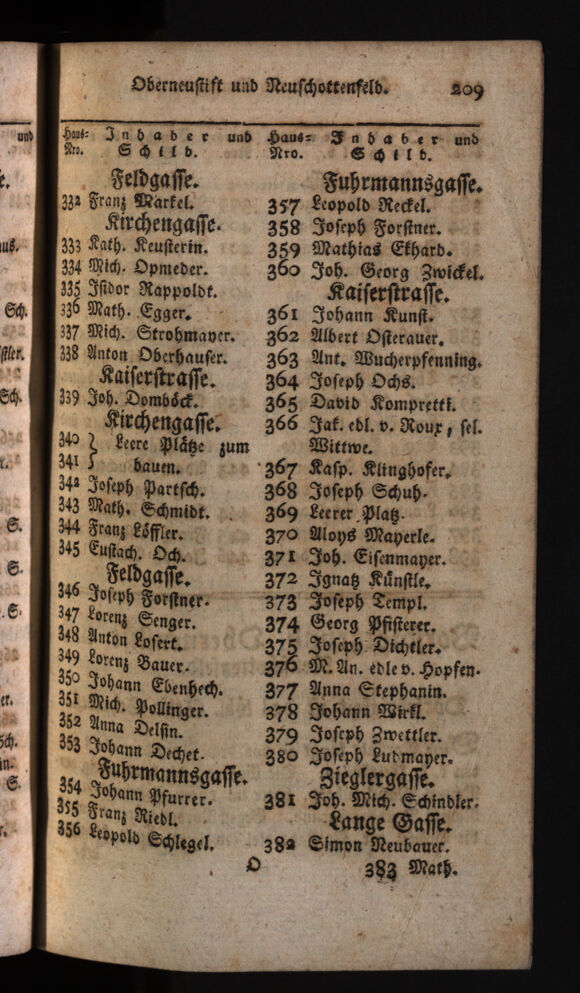 Oberneustift und Neuschottenfeld. 209
Haus= Inhaber und
Nro. Schild.
Feldgasse.
332 Franz Markel.
Kirchengasse.
333 Kath. Keusterin.
334 Mich. Opmeder.
335 Isidor Rappoldt.
336 Math. Egger.
337 Mich. Strohmayer.
338 Anton Oberhauser.
Kaiserstrasse.
339 Joh. Domböck.
Kirchengasse.
340 } Leere Plätze zum
341 } bauen.
342 Joseph Partsch.
343 Math. Schmidt.
344 Franz Löffler.
345 Eustach. Och.
Feldgasse.
346 Joseph Forstner.
347 Lorenz Senger.
348 Anton Losert.
349 Lorenz Bauer.
350 Johann Ebenhech.
351 Mich. Pollinger.
352 Anna Delsin.
353 Johann Dechet.
Fuhrmannsgasse.
354 Johann Pfurrer.
355 Franz Riedl.
356 Leopold Schlegel.
Haus= Inhaber und
Nro. Schild.
Fuhrmannsgasse.
357 Leopold Reckel.
358 Joseph Forstner.
359 Mathias Ekhard.
360 Joh. Georg Zwickel.
Kaiserstrasse.
361 Johann Kunst.
362 Albert Osterauer.
363 Ant. Wucherpfenning.
364 Joseph Ochs.
365 David Kompretti.
366 Jak. edl. v. Roux, sel.
Wittwe.
367 Kasp. Klinghofer.
368 Joseph Schuh.
369 Leerer Platz.
370 Aloys Mayerle.
371 Joh. Eisenmayer.
372 Ignatz Künstle.
373 Joseph Templ.
374 Georg Pfisterer.
375 Joseph Dichtler.
376 M. An. edle v. Hopfen.
377 Anna Stephanin.
378 Johann Wirkl.
379 Joseph Zwettler.
380 Joseph Ludmayer.
Zieglergasse.
381 Joh. Mich. Schindler.
Lange Gasse.
382 Simon Neubauer.
O 383 Math.